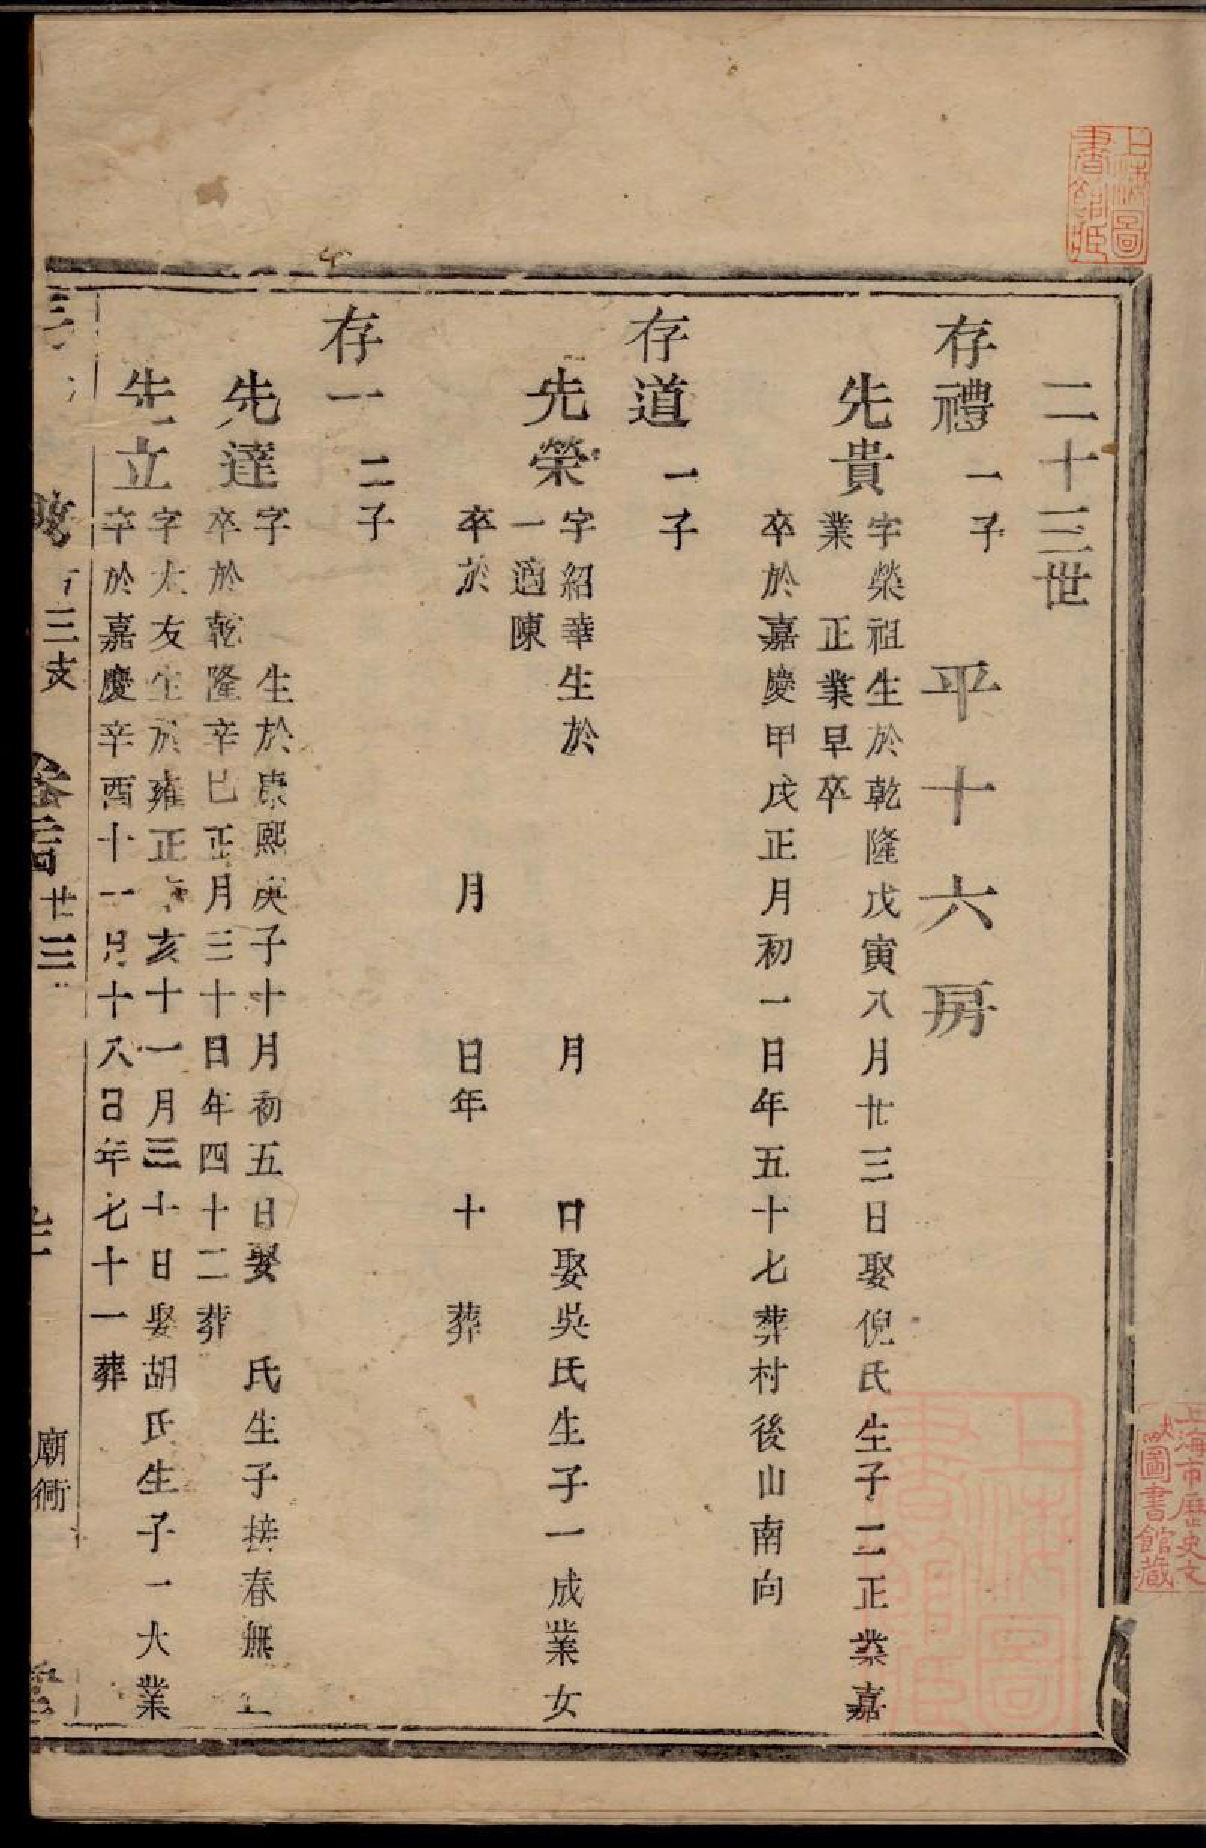 二十三世
平十六房
存禮 一子
先貴 字榮祖生於乾隆戊寅八月廿三日娶倪氏生子二正業嘉
業 正業早卒
卒於嘉慶甲戌正月初一日年五十七葬村後山南向
存道 一子
先榮 字紹華生於 月 日娶吳氏生子一成業女
一適陳
卒於 月 日年 十 葬
存一 二子
先達 字 生於康熙庚子十月初五日娶 氏生子接春無
卒於乾隆辛巳正月三十日年四十二葬
先立 字太友生於雍正 亥十一月三十日娶胡氏生子一大業
卒於嘉慶辛酉十一月十八日年七十一葬
三支
廿三
廟衕
上海圖書館藏
上海市歷史文獻圖書館藏